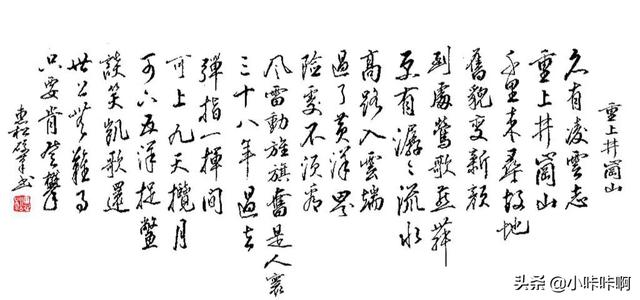 重上井崗山
久有凌雲志
重上井崗山
千里来尋故地
舊貌變新顔
到處鶯歌燕舞
更有潺々流水
高路入雲端
過了黄洋界
險處不須看
風雷動旌旗奮是人寰
三十八年過去
彈指一揮間
可上九天攬月
可下五洋捉鱉
談笑凱歌還
世上無難事
只要肯登攀
头条 @小咔咔啊